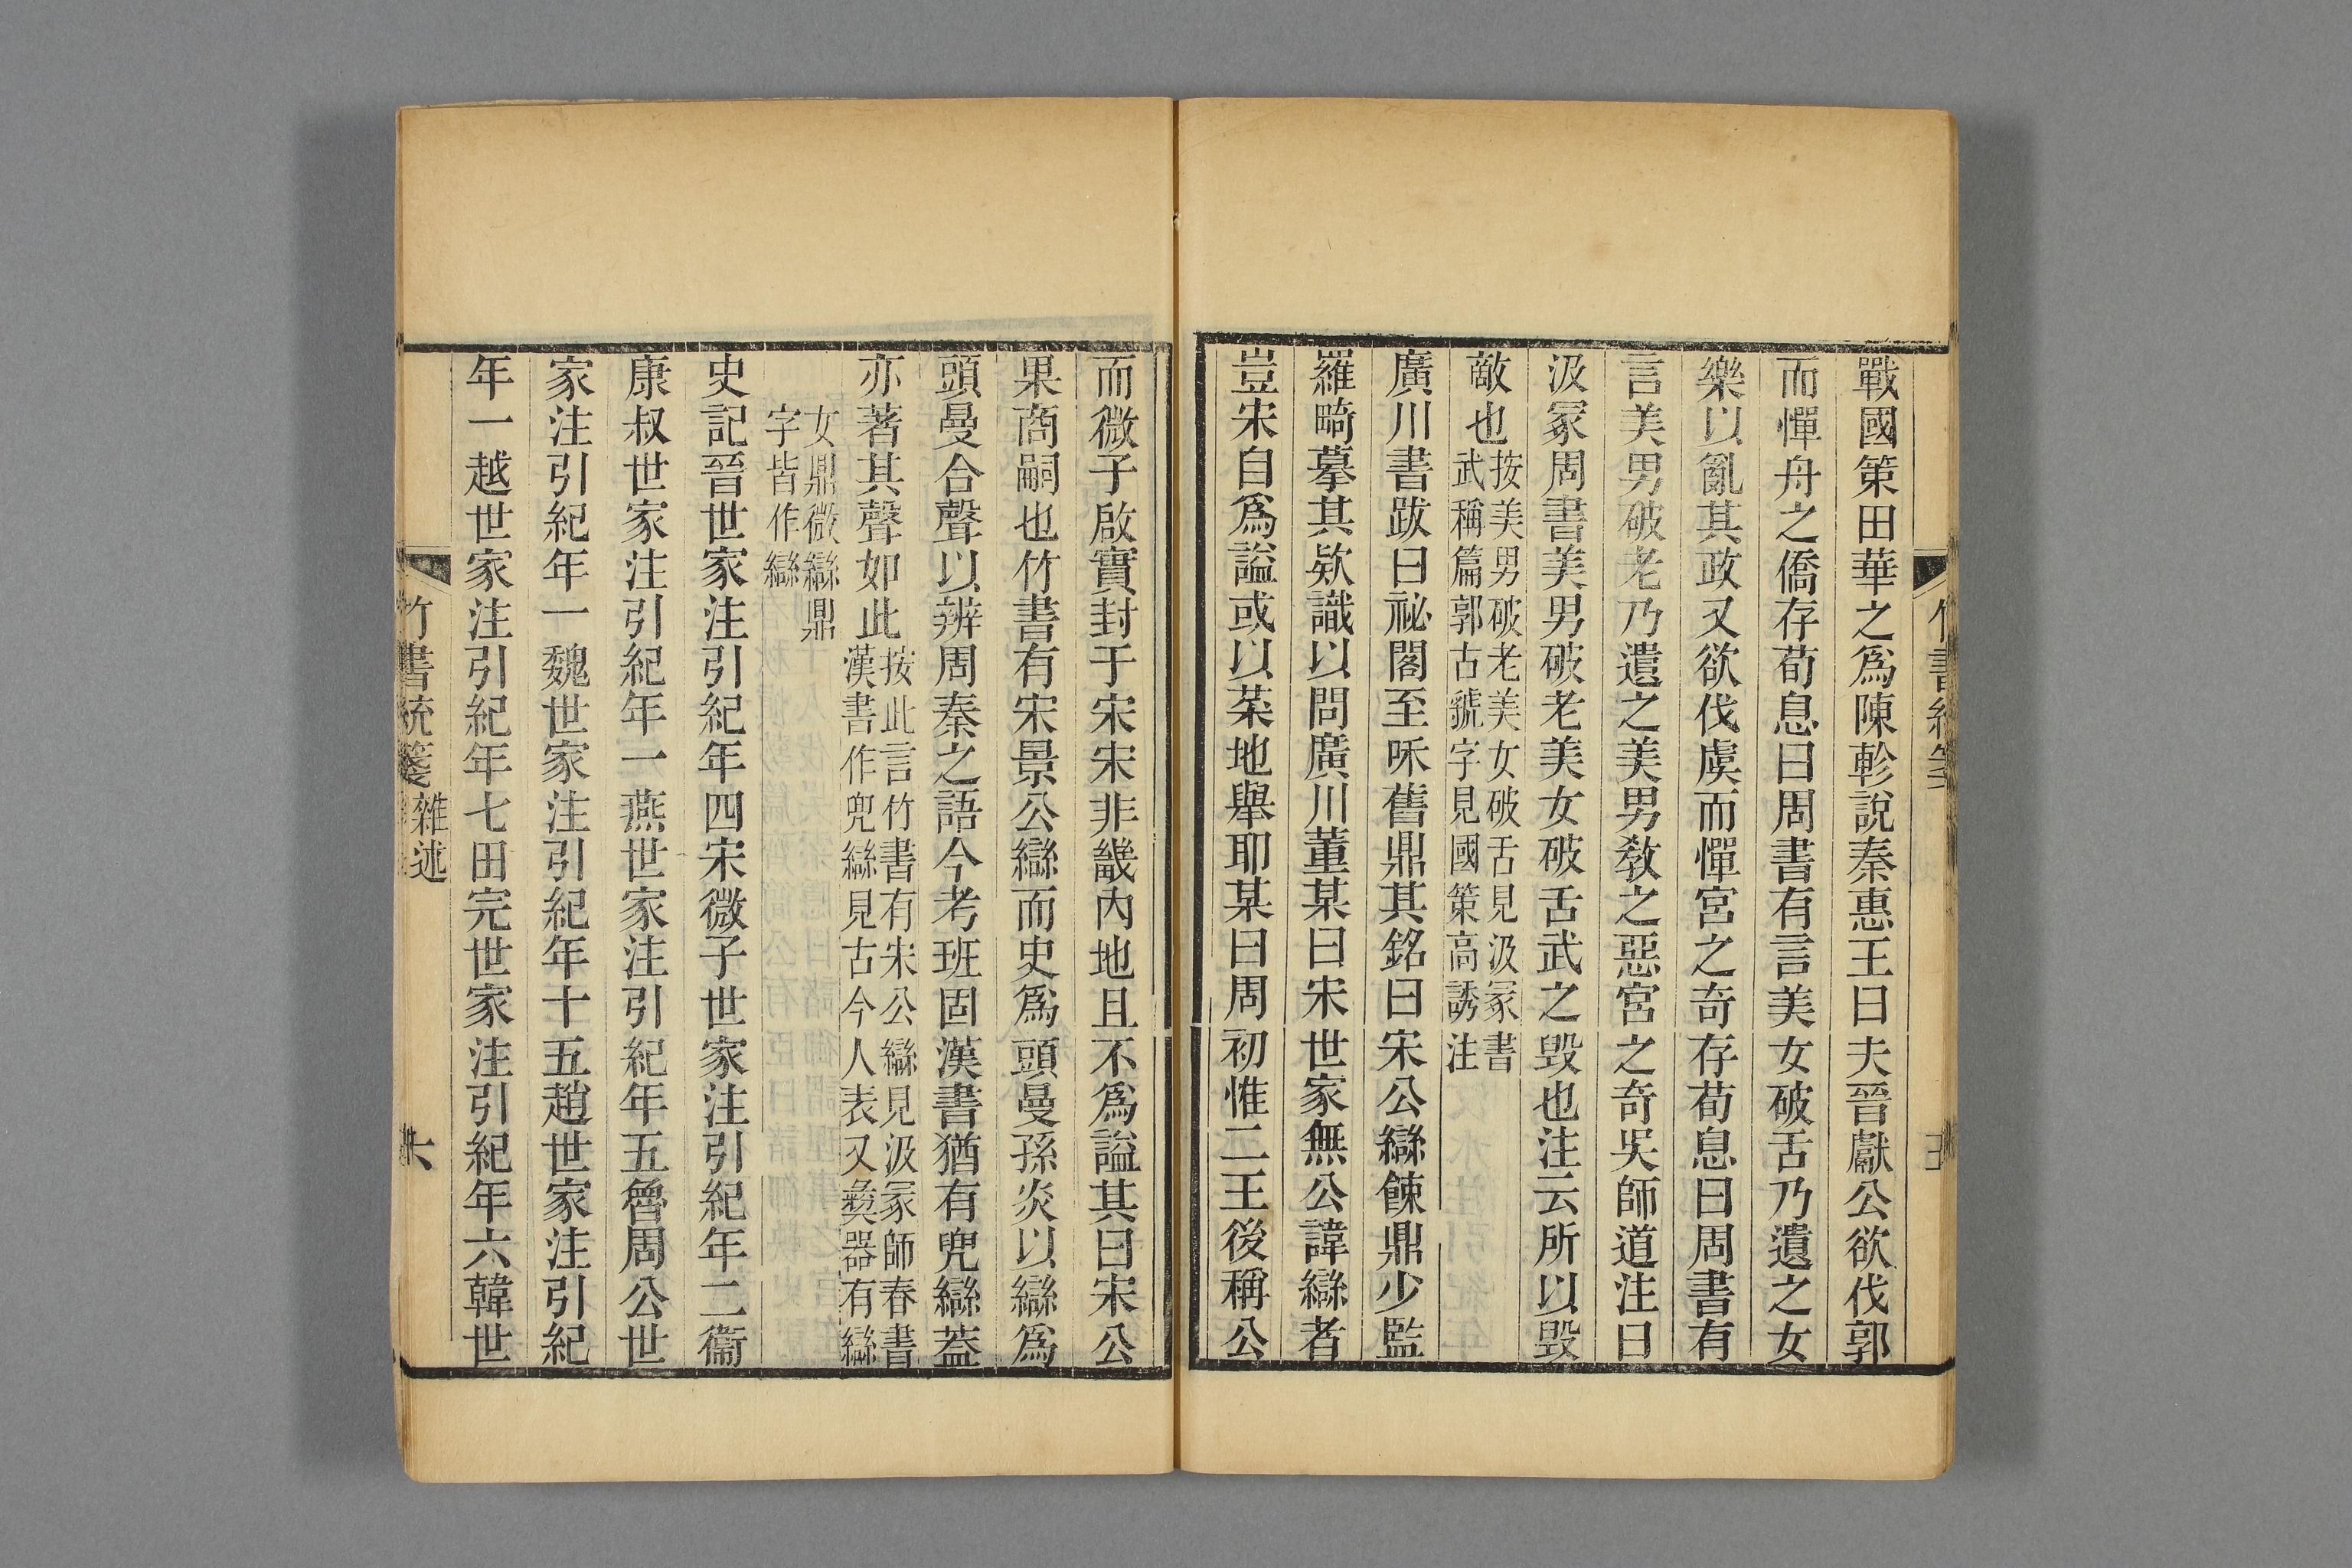 戰國策田華之爲陳軫說秦惠王曰夫晉獻公欲伐郭
而憚舟之僑存荀息曰周書有言美女破舌乃遺之女
樂以亂其政又欲伐虞而憚宮之奇存荀息曰周書有
言美男破老乃遺之美男敎之惡宮之奇吴師道注曰
汲冢周書美男破老美女破舌武之毁也注云所以毁
敵也按美男破老美女破舌見汲冢書武稱篇郭古虢字見國策高誘注
廣川書跋曰祕閣至𥘸舊鼎其銘曰宋公䜌餗鼎少監
羅畸摹其欵識以問廣川董某曰宋世家無公諱䜌者
豈宋自爲諡或以菜地舉耶某曰周初惟二王後稱公
而微子啟實封于宋宋非畿內地且不爲諡其曰宋公
果商嗣也竹書有宋景公䜌而史爲頭曼孫炎以䜌爲
頭曼合聲以辨周秦之語今考班固漢書猶有兜䜌葢
亦著其聲如此按此言竹書有宋公䜌見汲冢師春書漢書作兜䜌見古今人表又彝器有䜌
女鼎微䜌鼎字皆作䜌
史記晉世家注引紀年四宋微子世家注引紀年二衞
康叔世家注引紀年一燕世家注引紀年五魯周公世
家注引紀年一魏世家注引紀年十五趙世家注引紀
年一越世家注引紀年七田完世家注引紀年六韓世
竹書統箋 雜述 六